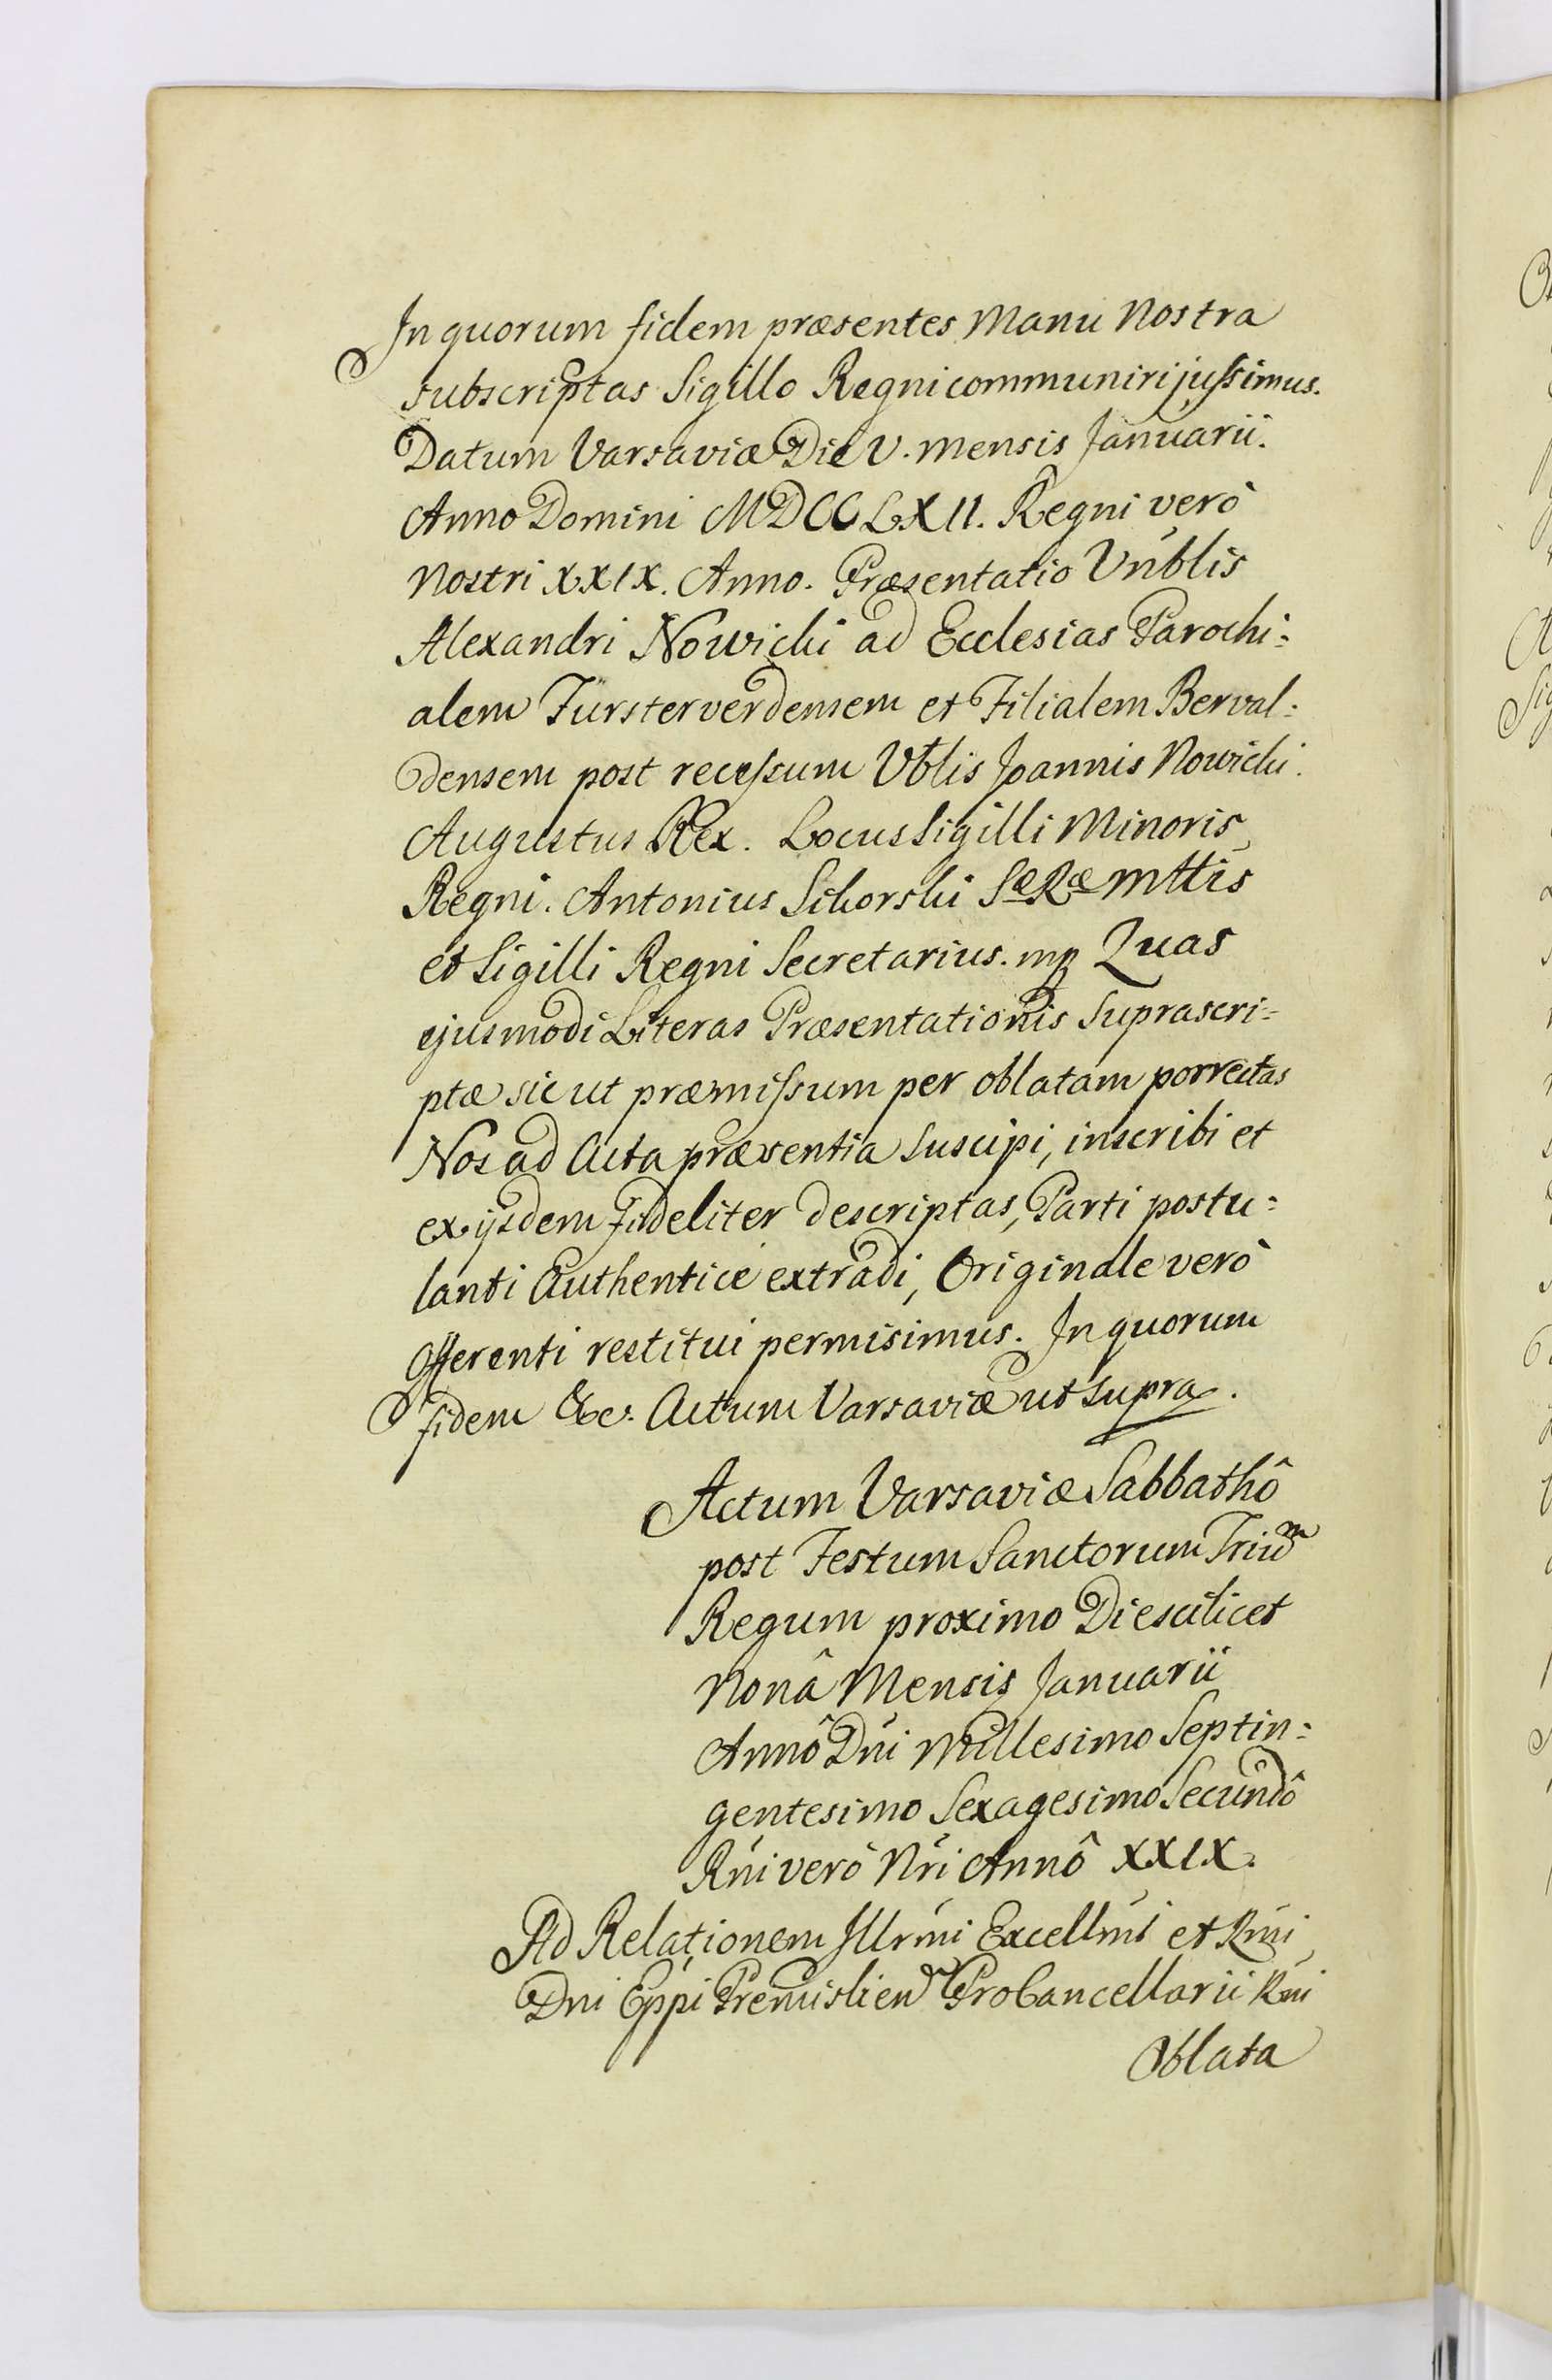 In quorum fidem præsentes Manu Nostra
subscriptas Sigillo Regni communiri jussimus.
Datum Varsaviæ Die V. mensis Januarii.
Anno Domini MDCCLXII. Regni verò
Nostri XXIX. Anno. Præsentatio Vnblis
Alexandri Nowicki ad Ecclesias Parochi=
alem Fürsterverdensem et Filialem Berval=
densem post recessum Vblis Joannis Nowicki.
Augustus Rex. Locus Sigilli Minoris
Regni. Antonius Sikorski Sæ Ræ Mttis
et Sigilli Regni Secretarius. mp Quas
ejusmodi Literas Præsentationis suprascri=
ptæ sic ut præmissum per oblatam porrectas
Nos ad Acta præsentia suscipi, inscribi et
ex ijsdem fideliter descriptas, Parti postu=
lanti Authenticè extradi, Originale verò
Offerenti restitui permisimus. In quorum
fidem &c. Actum Varsaviæ ut supra.
Actum Varsaviæ Sabbathô
post Festum Sanctorum Trium
Regum proximo Die scilicet
Nonâ Mensis Januarii
Annô Dni Millesimo Septin=
gentesimo Sexagesimo Secundô
Rni verò Nri Annô XXIX.
Ad Relationem Illrmi Excellmi et Rmi
Dni Eppi Premislien ProCancellarii Rni
Oblata